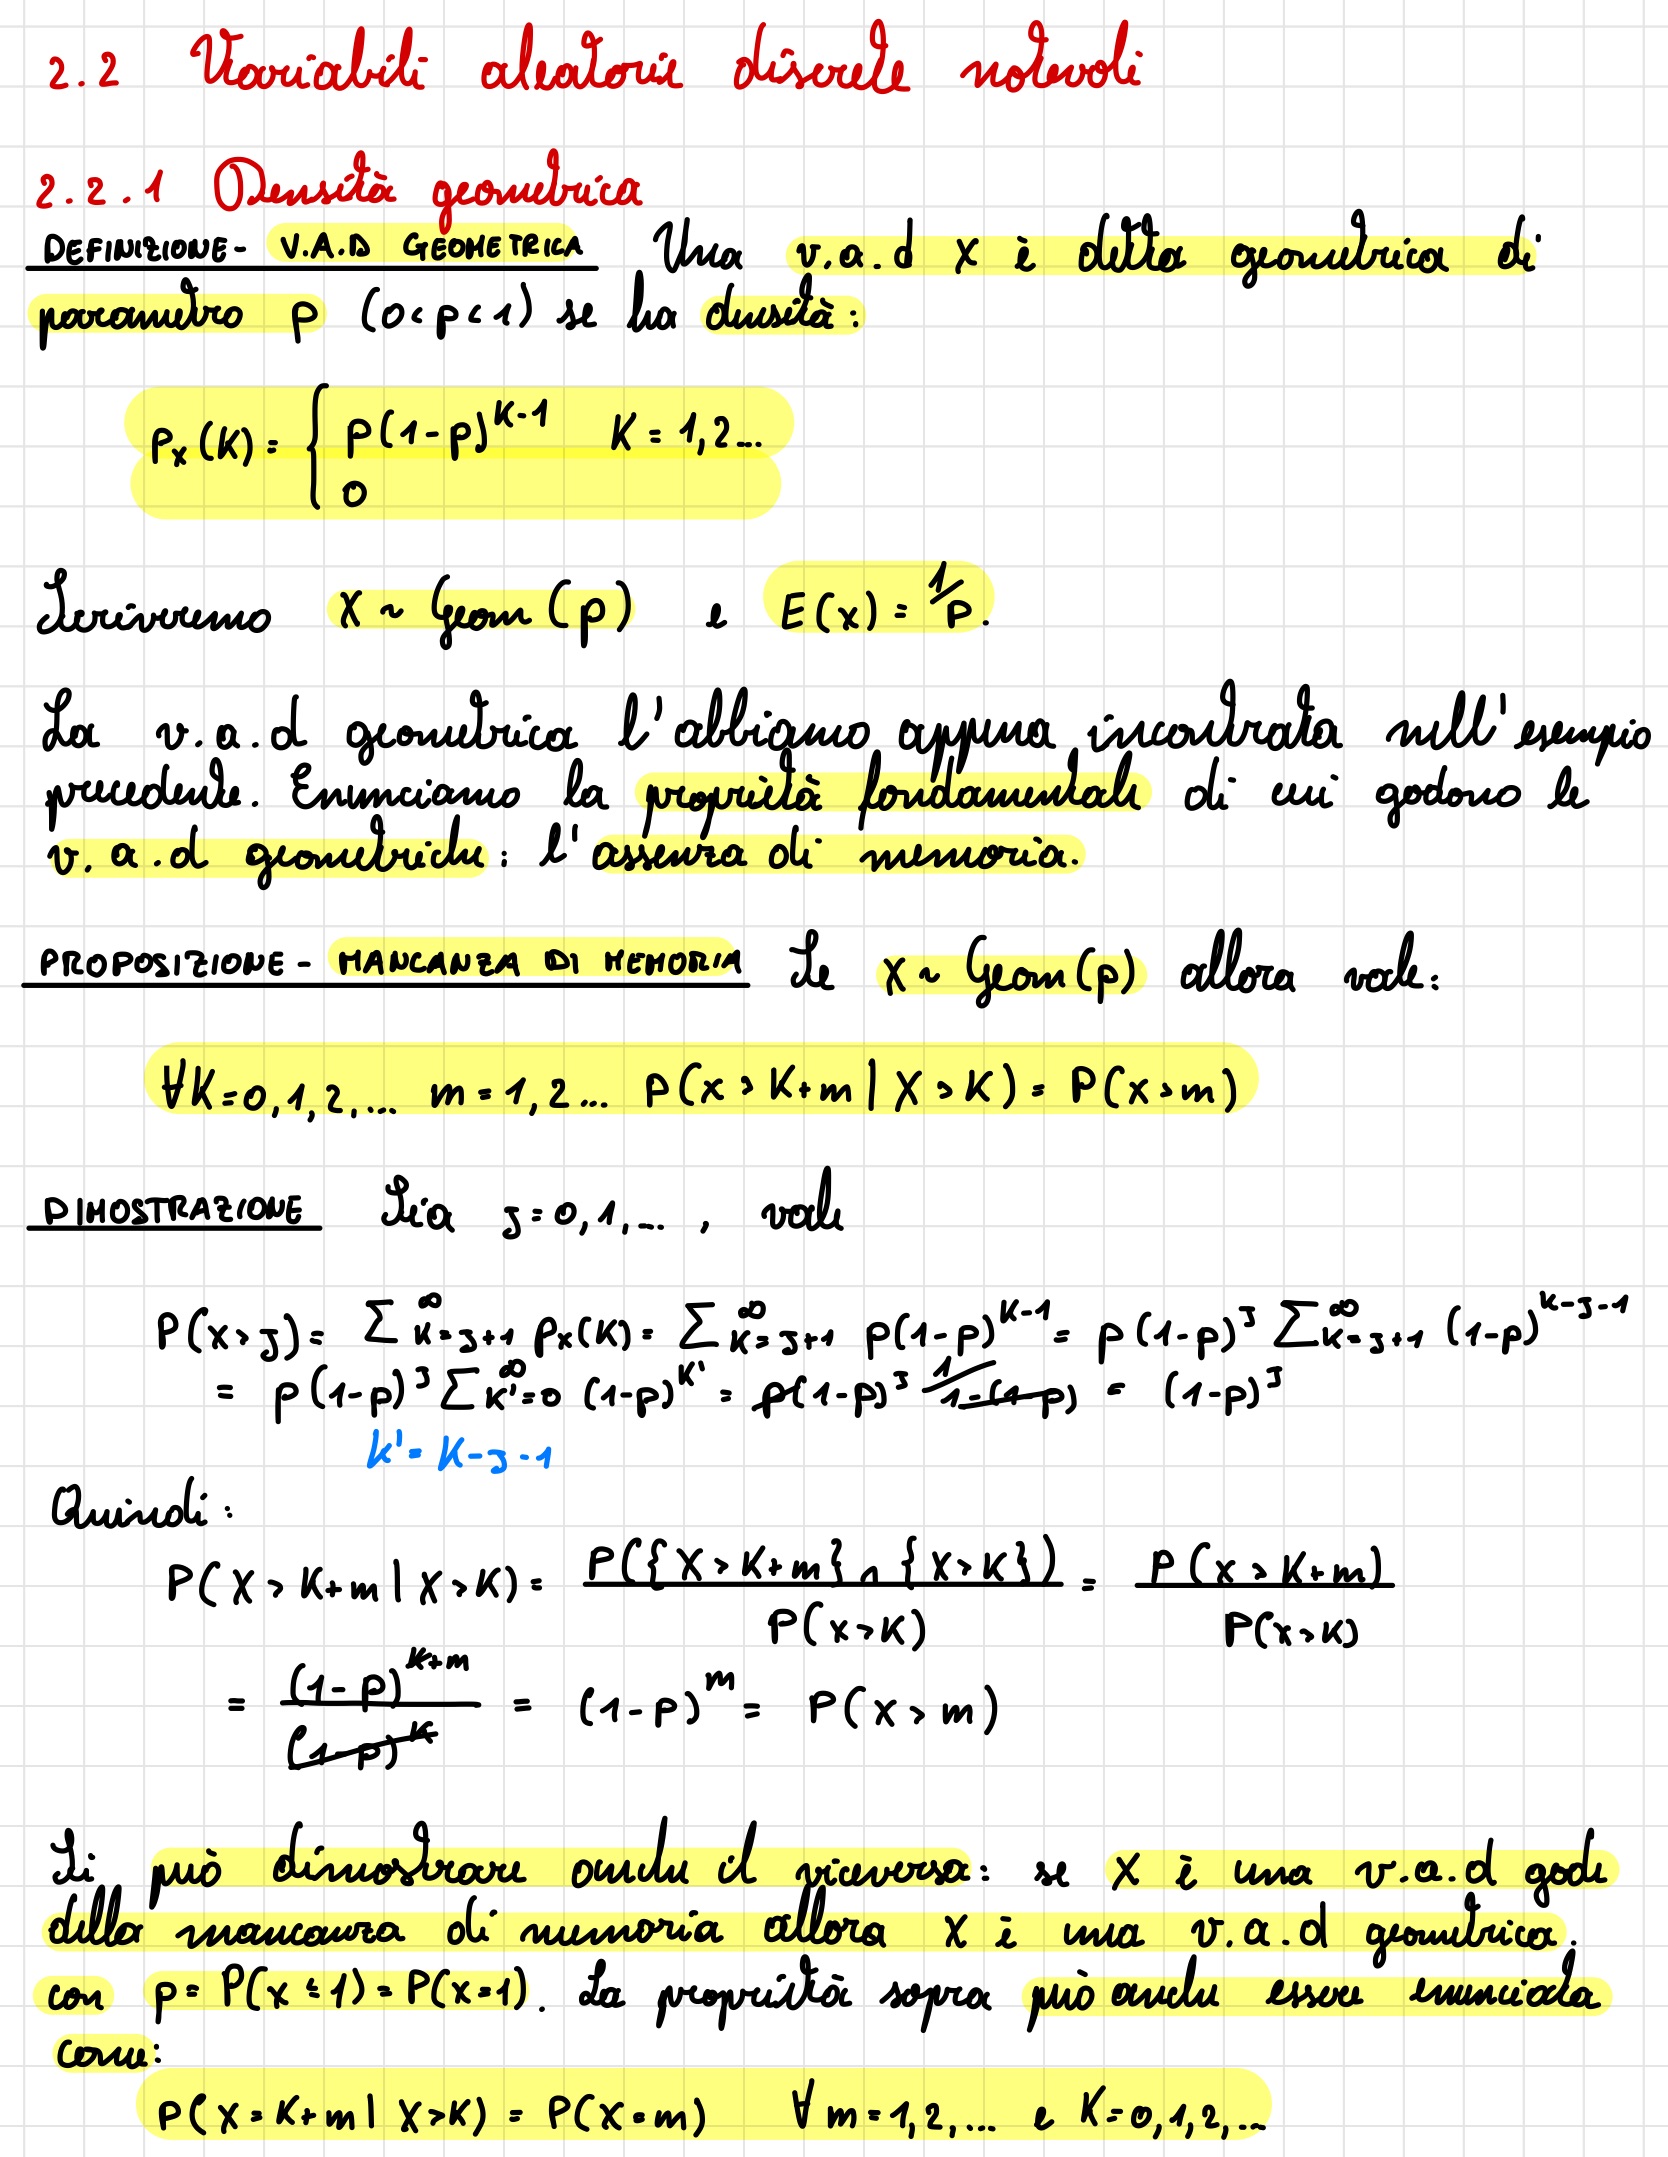 2.2 Variabili aleatorie discrete notevoli
2.2.1 Densità geometrica
DEFINIZIONE- V.A.D GEOMETRICA Una v.a.d X è detta geometrica di
parametro p (0<p<1) se ha densità:
Px(K) = { p(1-p)^{K-1} K=1,2...
0
Scriveremo X ~ Geom(p) e E(x) = 1/p.
La v.a.d geometrica l'abbiamo appena incontrata nell'esempio
precedente. Enunciamo la proprietà fondamentale di cui godono le
v.a.d geometriche: l'assenza di memoria.
PROPOSIZIONE - MANCANZA DI MEMORIA Se X ~ Geom(p) allora vale:
∀K=0,1,2,... m=1,2... P(x>K+m | X>K) = P(x>m)
DIMOSTRAZIONE Sia J=0,1,... , vale
P(x>J) = ∑^∞_{K=J+1} Px(K) = ∑^∞_{K=J+1} p(1-p)^{K-1} = p(1-p)^J ∑^∞_{K=J+1} (1-p)^{K-J-1}
= p(1-p)^J ∑^∞_{K'=0} (1-p)^{K'} = p(1-p)^J 1/1-(1-p) = (1-p)^J
K' = K-J-1
Quindi:
P(X>K+m | X>K) = P({X>K+m} ∩ {X>K}) / P(x>K) = P(x>K+m) / P(x>K)
= (1-p)^{K+m} / (1-p)^K = (1-p)^m = P(x>m)
Si può dimostrare anche il viceversa: se X è una v.a.d gode
della mancanza di memoria allora X è una v.a.d geometrica.
con p = P(x≤1) = P(x=1). La proprietà sopra può anche essere enunciata
come:
P(X=K+m | X>K) = P(X=m) ∀ m=1,2,... e K=0,1,2,...